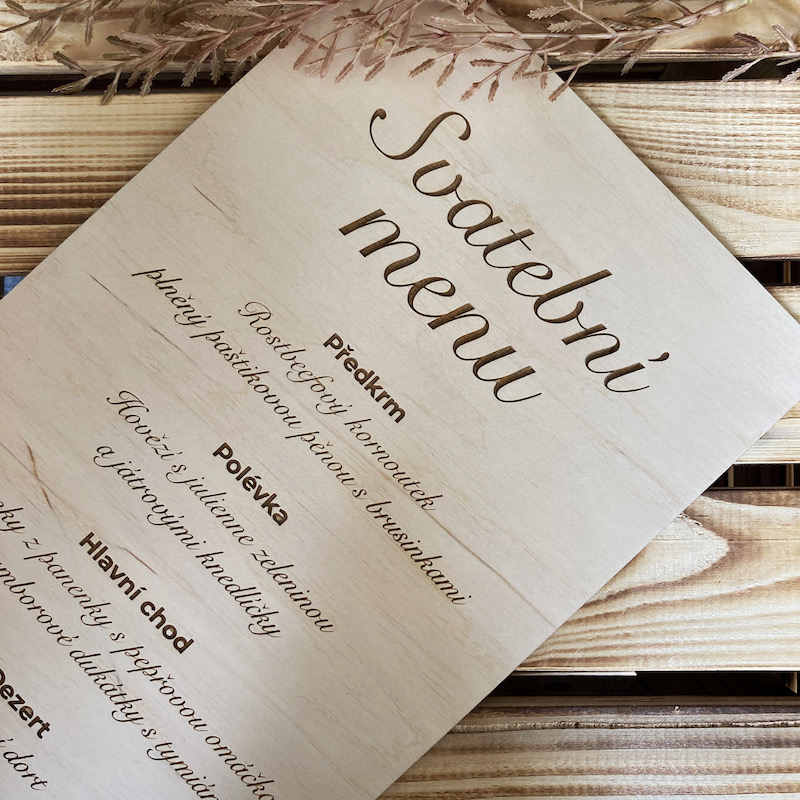 Svatební
menu
Předkrm
Rostbeefový kornoutek
plněný paštikovou pěnou s brusinkami
Polévka
Hovězí s julienne zeleninou
a játrovými knedlíčky
Hlavní chod
z panenky s pepřovou omáčkou
dukátky s
Dezert
dort